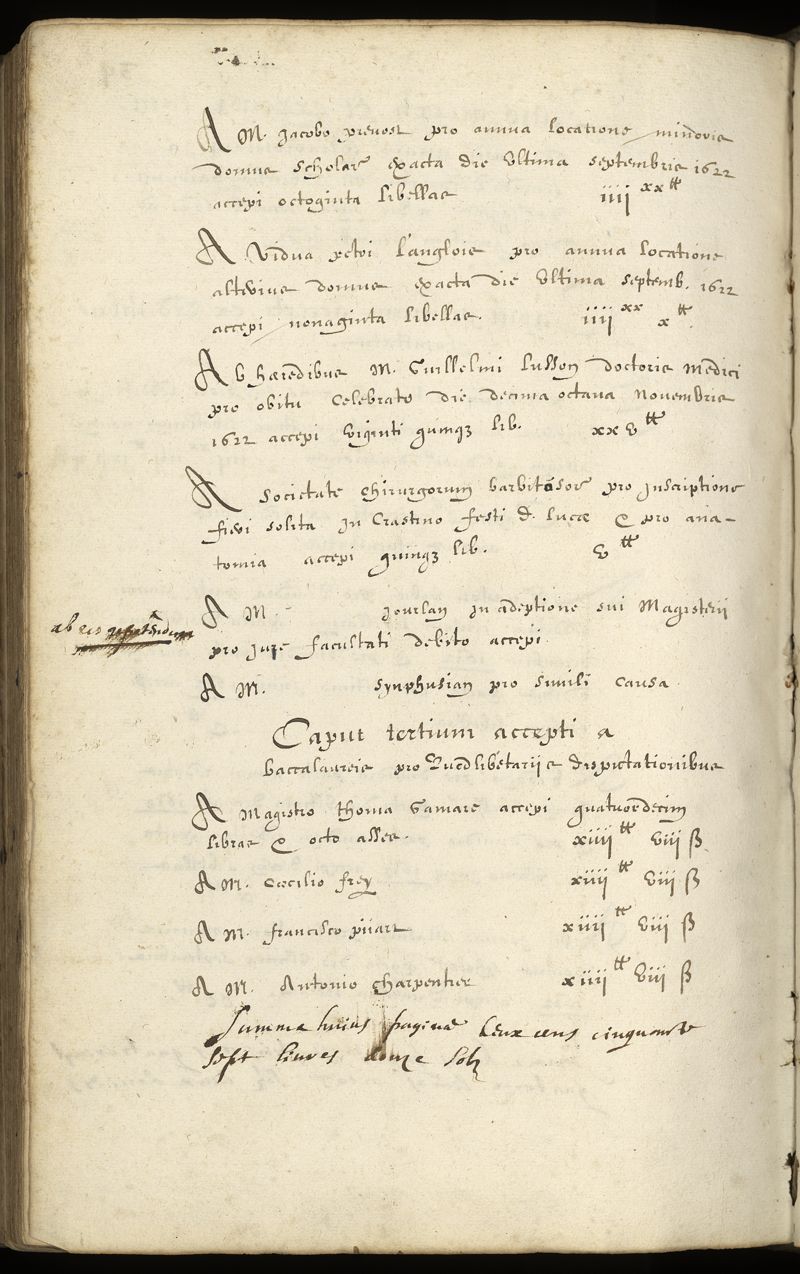 A M. Jacobo prevost pro annua locatione minoris
domus Scholar exacta die ultima septembris 1622
accepi octoginta libellas iiij xx tt
A Vidua petri l'anglois pro annua locatione
alterius domus exacta die ultima septemb. 1622
accepi nonaginta libellas. iiij xx x tt.
Ab hæredibus M. Guillelmi lusson doctoris medici
pro obitu celebrato die decima octava novembris
1622 accepi viginti quinq3 lib. xx v tt
A Societate chirurgorum barbitosor pro inscriptione
fieri solita in crastino festi d. lucæ & pro ana-
tomia accepi quinq3 lib. v tt
A M. Jourlan in adeptione sui Magisterij
ab eis
pro jure facultati debito accepi
A M. synphusian pro simili causa
Caput tertium accepti a
baccalaureis pro Quodlibetarijs disputationibus
A Magistro thoma Gamare accepi quatuordecim
libras & octo asses. xiiij tt viij ß
A M. Cæcilio frey xiiij tt viij ß
A M. francisco pijart xiiij tt viij ß
A M. Antonio Charpentier xiiij tt viij ß
Summa huius paginæ deux cens cinquante
sept livres douze solz